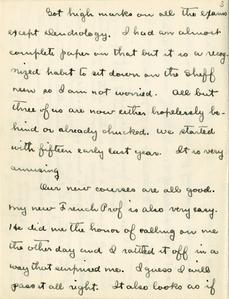 3
Got high marks on all the exams
except Dendrology. I had an almost
complete paper on that but it is a recog-
nized habit to sit down on the Sheff
men so I am not worried. All but
three of us are now either hopelessly be-
hind or already chucked. We started
with fifteen early last year. It is very
amusing
Our new courses are all good.
My new French Prof is also very easy.
He did me the honor of calling on me
the other day and I rattled it off in a
way that surprised me. I guess I will
pass it all right. It also looks as if